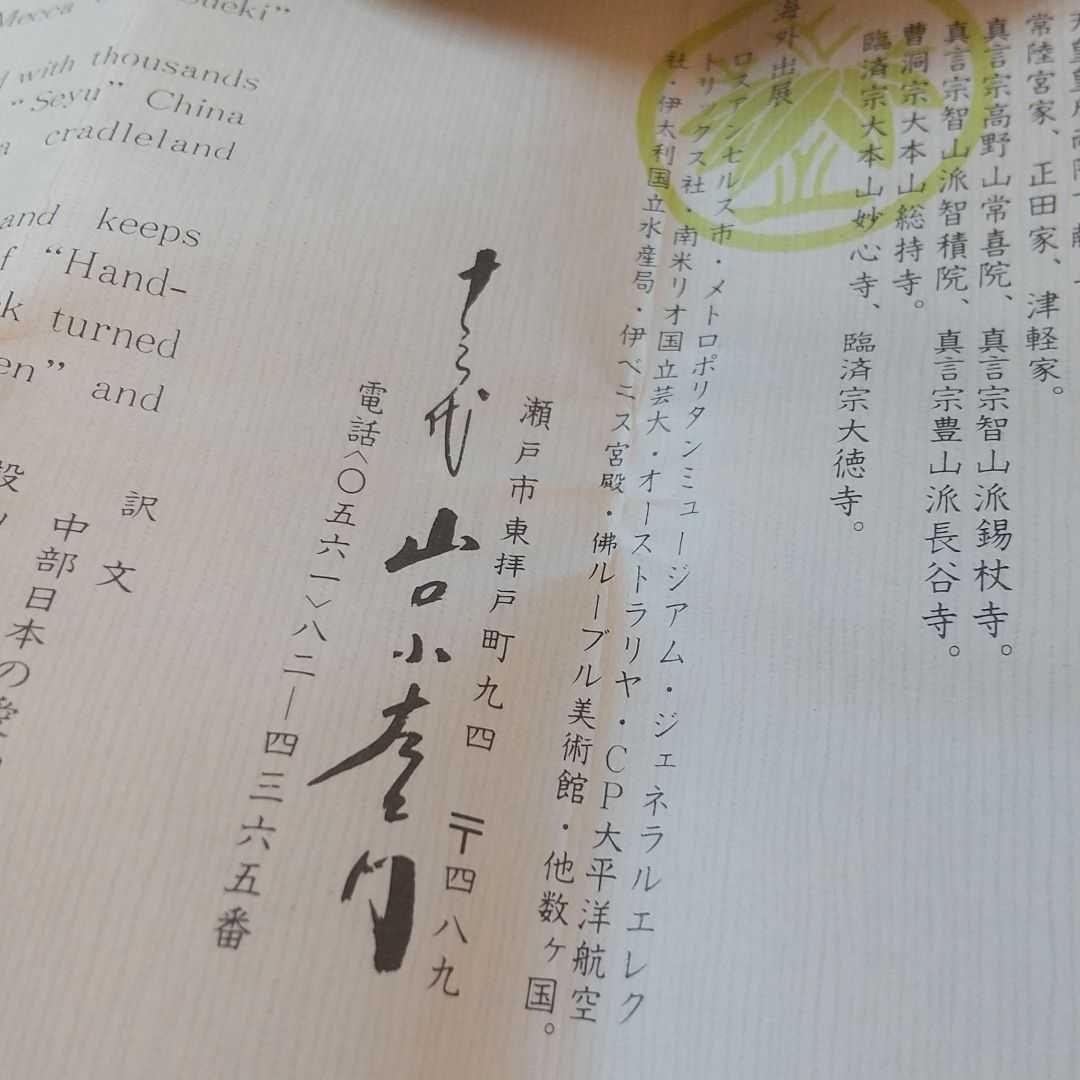 Mecca
ueki”
d with thousands
“Seyu” China
a cradleland
and keeps
f “Hand-
k turned
en” and
常陸宮家、正田家、津軽家。
真言宗高野山常喜院、真言宗智山派錫杖寺。
真言宗智山派智積院、真言宗豊山派長谷寺。
曹洞宗大本山総持寺。
臨済宗大本山妙心寺、臨済宗大徳寺。
海外出展
ロスアンゼルス市・メトロポリタンミュージアム・ジェネラルエレク
トリックス社・南米リオ国立芸大・オーストラリヤ・CP大平洋航空
社・伊太利国立水産局・伊ベニス宮殿・佛ルーブル美術館・他数ヶ国。
瀬戸市東拝戸町九四 〒四八九
十三代 山口小左ヱ門
電話〈〇五六一〉八二―四三六五番
訳文
中部日本の